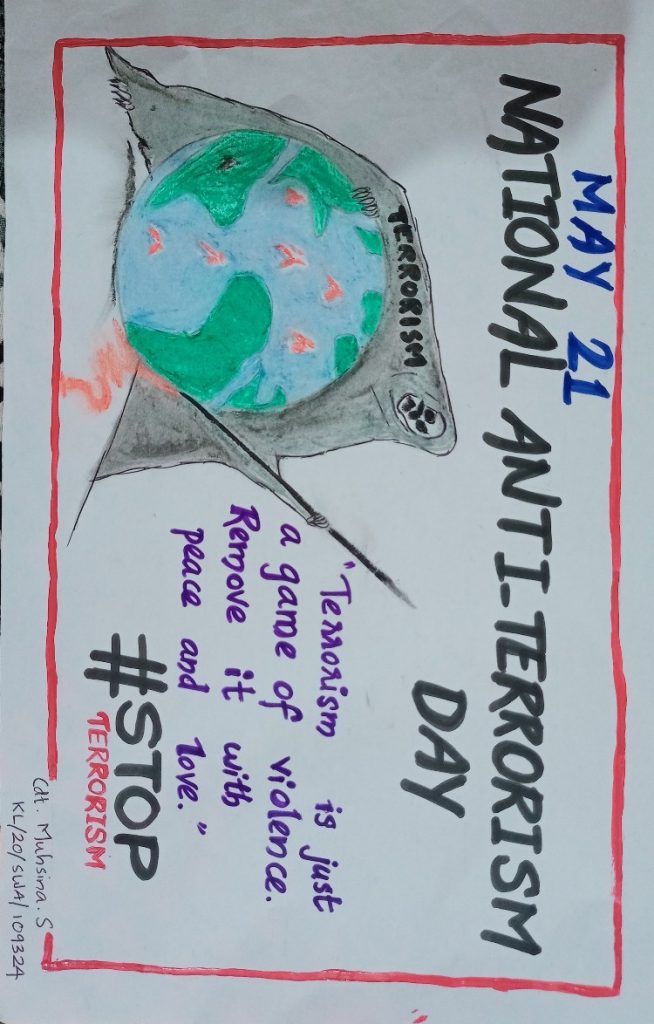 MAY 21
NATIONAL ANTI-TERRORISM
DAY
TERRORISM
"Terrorism is just
a game of violence.
Remove it with
peace and love."
#STOP
TERRORISM
Cdt. Muhsina. S
KL/20/SWA/109324